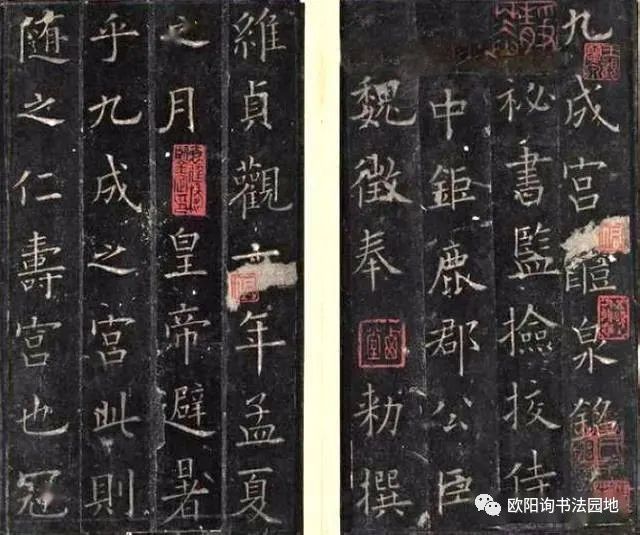 九成宫醴泉銘
祕書監撿挍侍
中鉅鹿郡公臣
魏徵奉 勑撰
維貞觀六年孟夏
之月 皇帝避暑
乎九成之宫此則
随之仁壽宫也冠
欧阳询书法园地